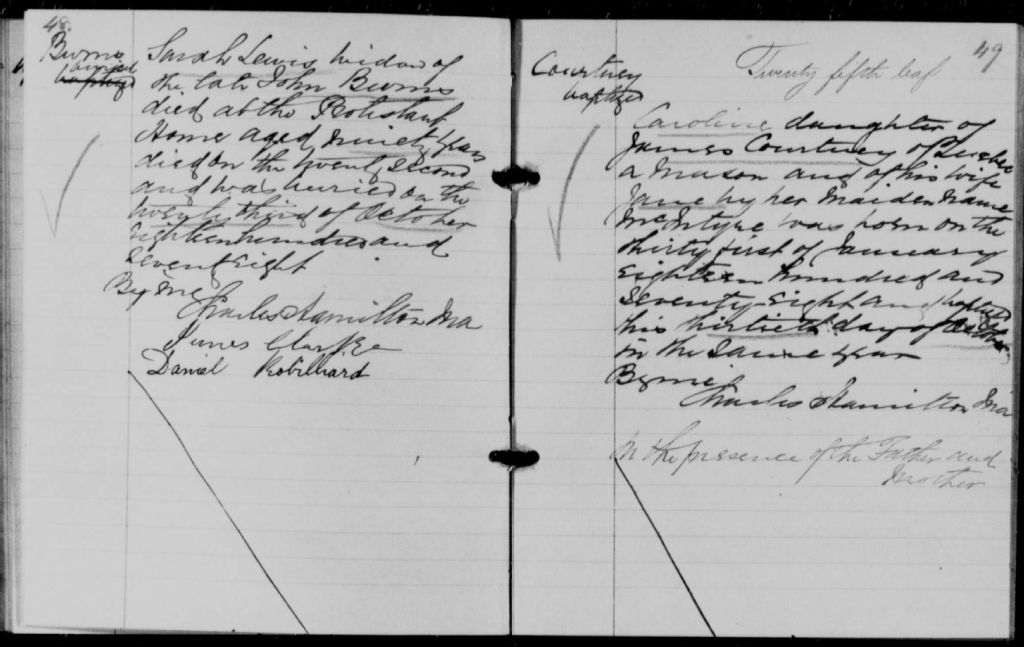 48.
Burns
buried
baptized
Sarah Lewis, widow of
the late John Burns
died at the Protestant
Home aged ninety years
died on the twenty second
and was buried on the
twenty third of October
eighteen hundred and
seventy eight
By me
Charles Hamilton Ma
James Clarke
Daniel Robilliard
49
Twenty fifth leaf
Courtney
baptized
Caroline daughter of
James Courtney of Quebec
a Mason and of his wife
Jane by her maiden name
McIntyre was born on the
thirty first of January
eighteen hundred and
seventy eight and baptized
this thirtieth day of October
in the same year
By me
Charles Hamilton Ma
In the presence of the Father and
Mother